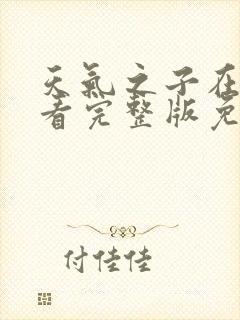 天氣之子在
看完整版免
付佳佳